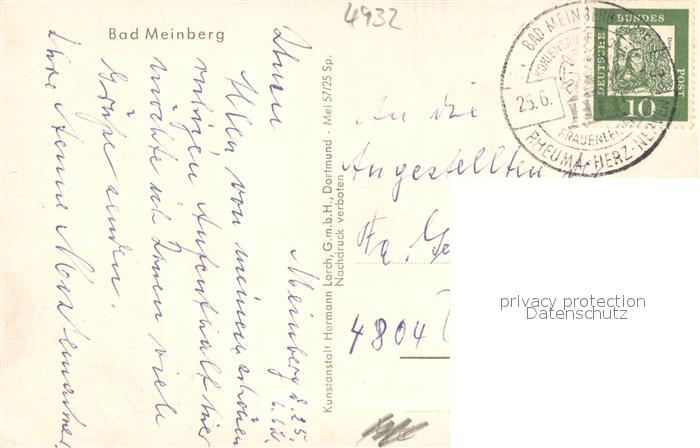 4932
Bad Meinberg
Meinberg d. 25.
6. 62.
Ihnen
Allen von meinem schönen
ruhigen Aufenthalt hier
möchte ich Ihnen viele
Grüße senden.
Ihre Aenne
Kunstanstalt Hermann Lorch, G.m.b.H., Dortmund - Mei 57/25 Sp.
Nachdruck verboten
An die
Angestellten
Fa.
4804
BAD MEINBERG
25.6.
FRAUENLEIDEN
RHEUMA·HERZ·NERVEN
DEUTSCHE BUNDES POST
10
privacy protection
Datenschutz